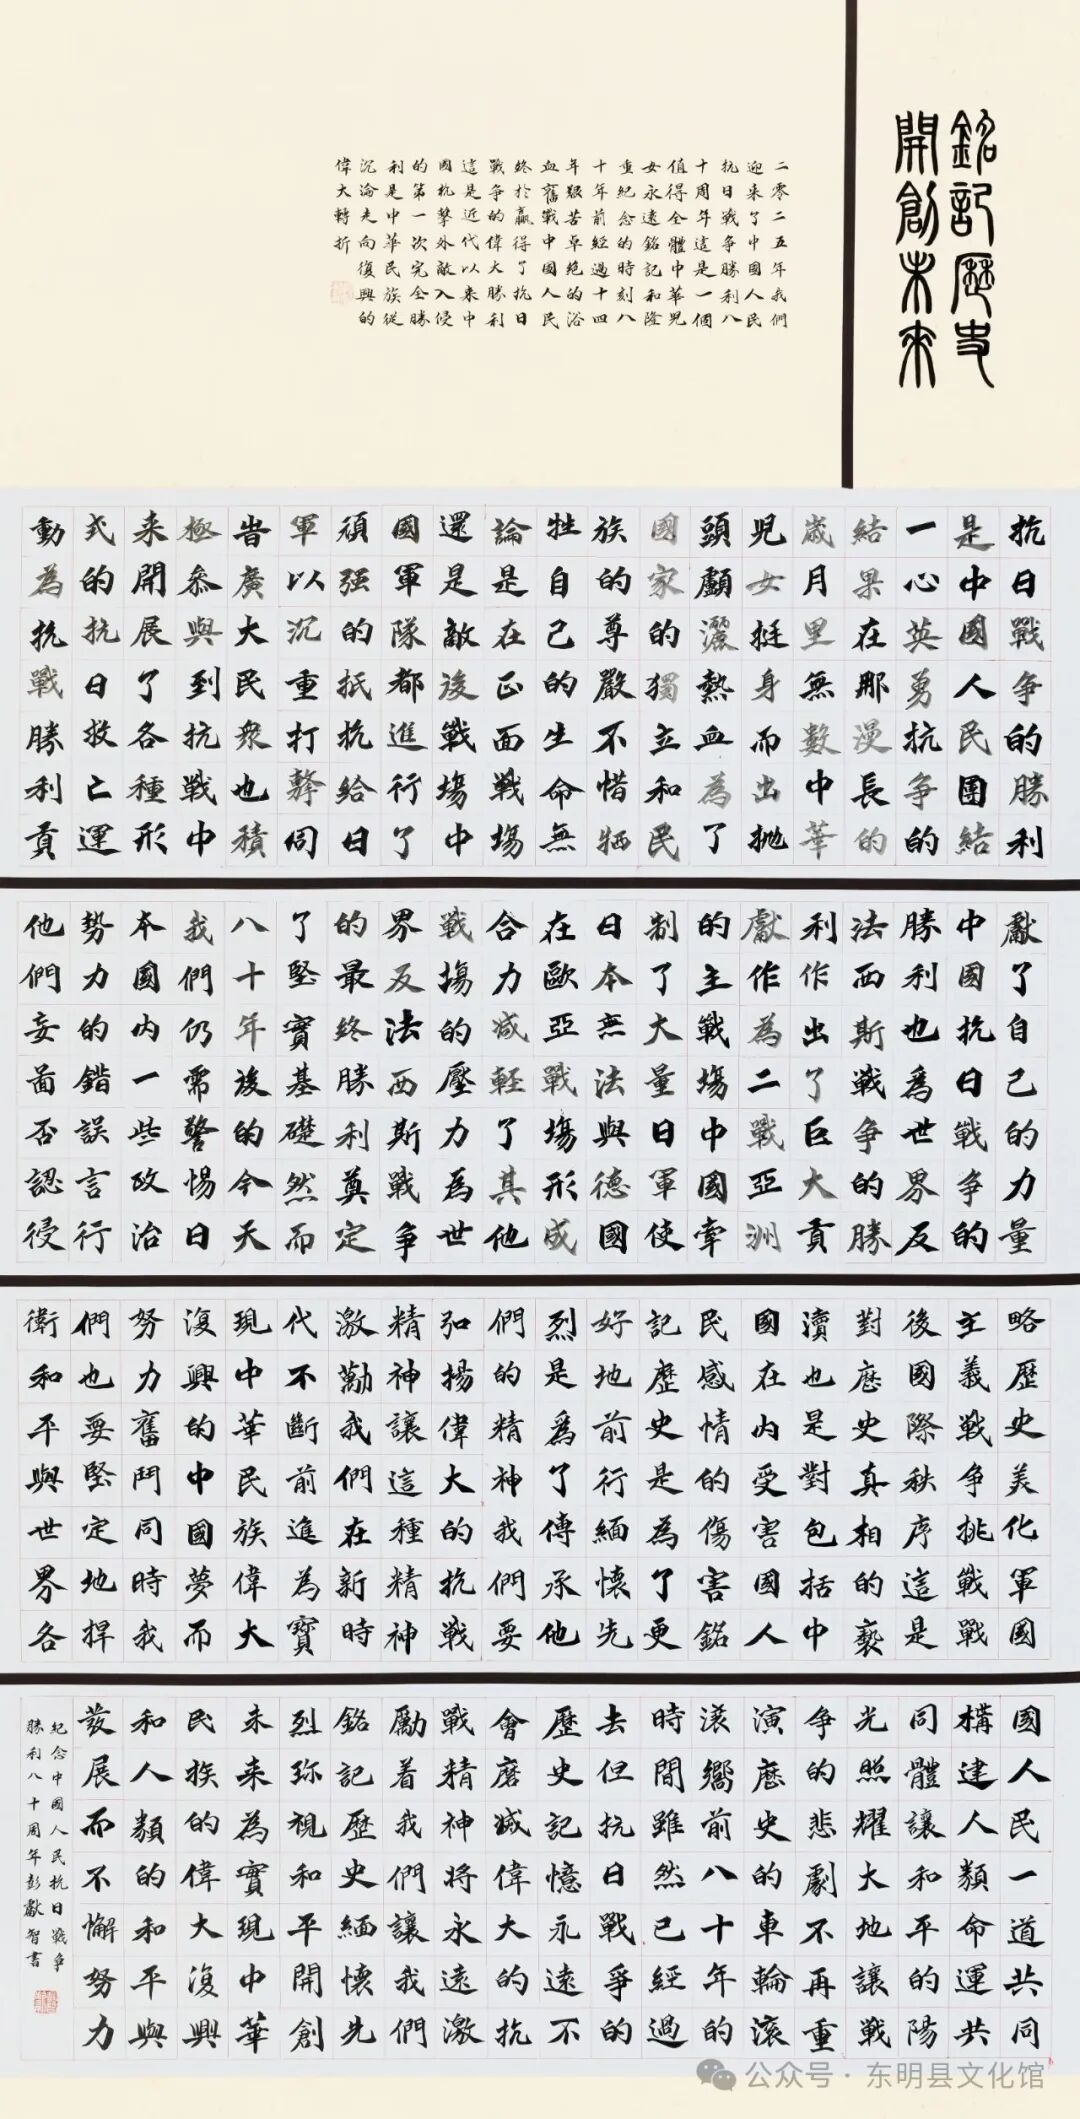 銘記歷史
開創未来
二零二五年我們
迎来了中國人民
抗日戰争勝利八
十周年這是一個
值得全體中華兒
女永遠銘記和隆
重紀念的時刻八
十年前經過十四
年艱苦卓绝的浴
血奮戰中國人民
終於贏得了抗日
戰争的偉大勝利
這是近代以来中
國抗擊外敵入侵
的第一次完全勝
利是中華民族從
沉淪走向復興的
偉大轉折
抗日戰争的勝利
是中國人民團結
一心英勇抗争的
結果在那漫長的
歲月里無數中華
兒女挺身而出抛
頭顱灑熱血為了
國家的獨立和民
族的尊嚴不惜牺
牲自己的生命無
論是在正面戰場
還是敵後戰場中
國軍隊都進行了
頑强的抵抗給日
軍以沉重打擊同
昔廣大民衆也積
極參與到抗戰中
来開展了各種形
式的抗日救亡運
動為抗戰勝利貢
獻了自己的力量
中國抗日戰争的
勝利也為世界反
法西斯戰争的勝
利作出了巨大貢
獻作為二戰亞洲
的主戰場中國牽
制了大量日軍使
日本無法與德國
在歐亞戰場形成
合力减輕了其他
戰場的壓力為世
界反法西斯戰争
的最終勝利奠定
了堅實基礎然而
八十年後的今天
我們仍需警惕日
本國内一些政治
勢力的錯誤言行
他們妄圖否認侵
略歷史美化軍國
主義戰争挑戰戰
後國際秩序這是
對歷史真相的褻
瀆也是對包括中
國在内受害國人
民感情的傷害銘
記歷史是為了更
好地前行緬懷先
烈是為了傳承他
們的精神我們要
弘揚偉大的抗戰
精神讓這種精神
激勵我們在新時
代不斷前進為實
現中華民族偉大
復興的中國夢而
努力奮鬥同時我
們也要堅定地捍
衛和平與世界各
國人民一道共同
構建人類命運共
同體讓和平的陽
光照耀大地讓戰
争的悲劇不再重
演歷史的車輪滚
滚嚮前八十年的
時間雖然已經過
去但抗日戰争的
歷史記憶永遠不
會磨滅偉大的抗
戰精神將永遠激
勵着我們讓我們
銘記歷史緬懷先
烈珍視和平開創
未来為實現中華
民族的偉大復興
和人類的和平與
發展而不懈努力
紀念中國人民抗日戰争
勝利八十周年彭獻智書
公众号·东明县文化馆